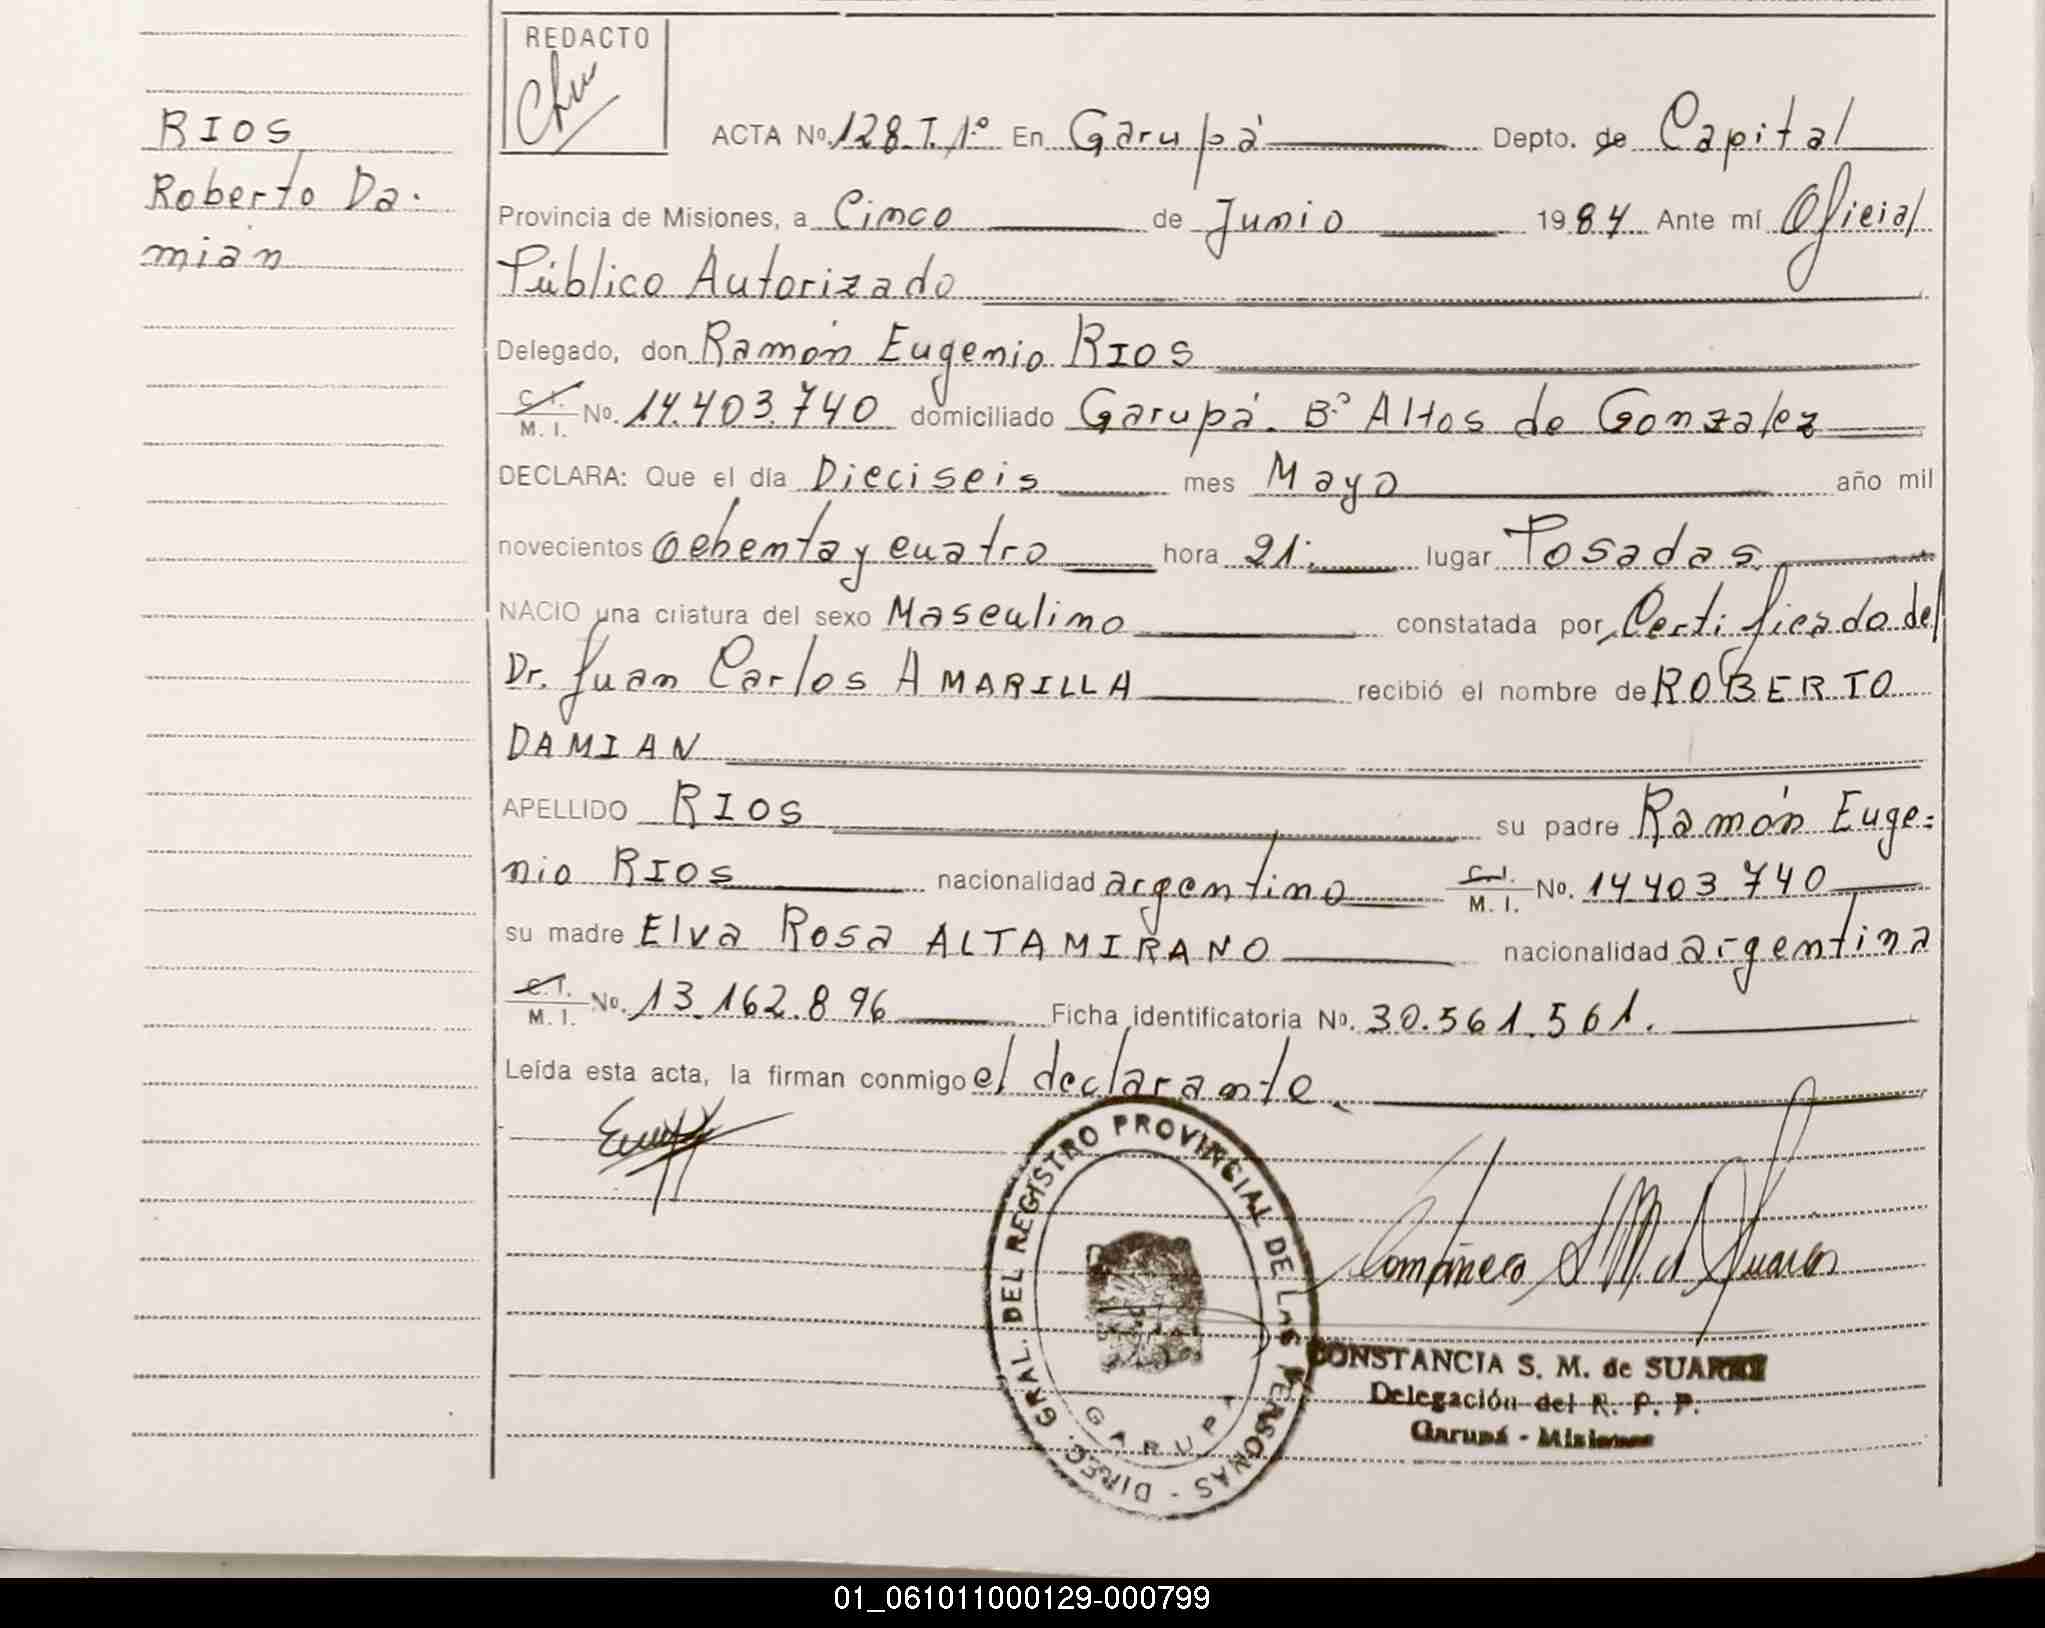 REDACTO
RIOS
Roberto Da-
mián
ACTA Nº 128.T.1º En Garupá Depto. de Capital
Provincia de Misiones, a Cinco de Junio 1984 Ante mí Oficial
Público Autorizado
Delegado, don Ramón Eugenio RIOS
C. I.
M. I. Nº. 14.403.740 domiciliado Garupá. Bº Altos de Gonzalez
DECLARA: Que el día Dieciseis mes Mayo año mil
novecientos ochenta y cuatro hora 21. lugar Posadas.
NACIO una criatura del sexo Masculino constatada por Certificado del
Dr. Juan Carlos AMARILLA recibió el nombre de ROBERTO
DAMIAN
APELLIDO RIOS su padre Ramón Euge=
nio RIOS nacionalidad argentino C. I.
M. I. Nº. 14.403.740
su madre Elva Rosa ALTAMIRANO nacionalidad argentina
C. I.
M. I. Nº. 13.162.896 Ficha identificatoria Nº. 30.561.561.
Leída esta acta, la firman conmigo el declarante.
DIREC. GRAL. DEL REGISTRO PROVINCIAL DE LAS PERSONAS -
GARUPA
CONSTANCIA S. M. de SUAREZ
Delegación del R. P. P.
Garupá - Misiones
01_061011000129-000799